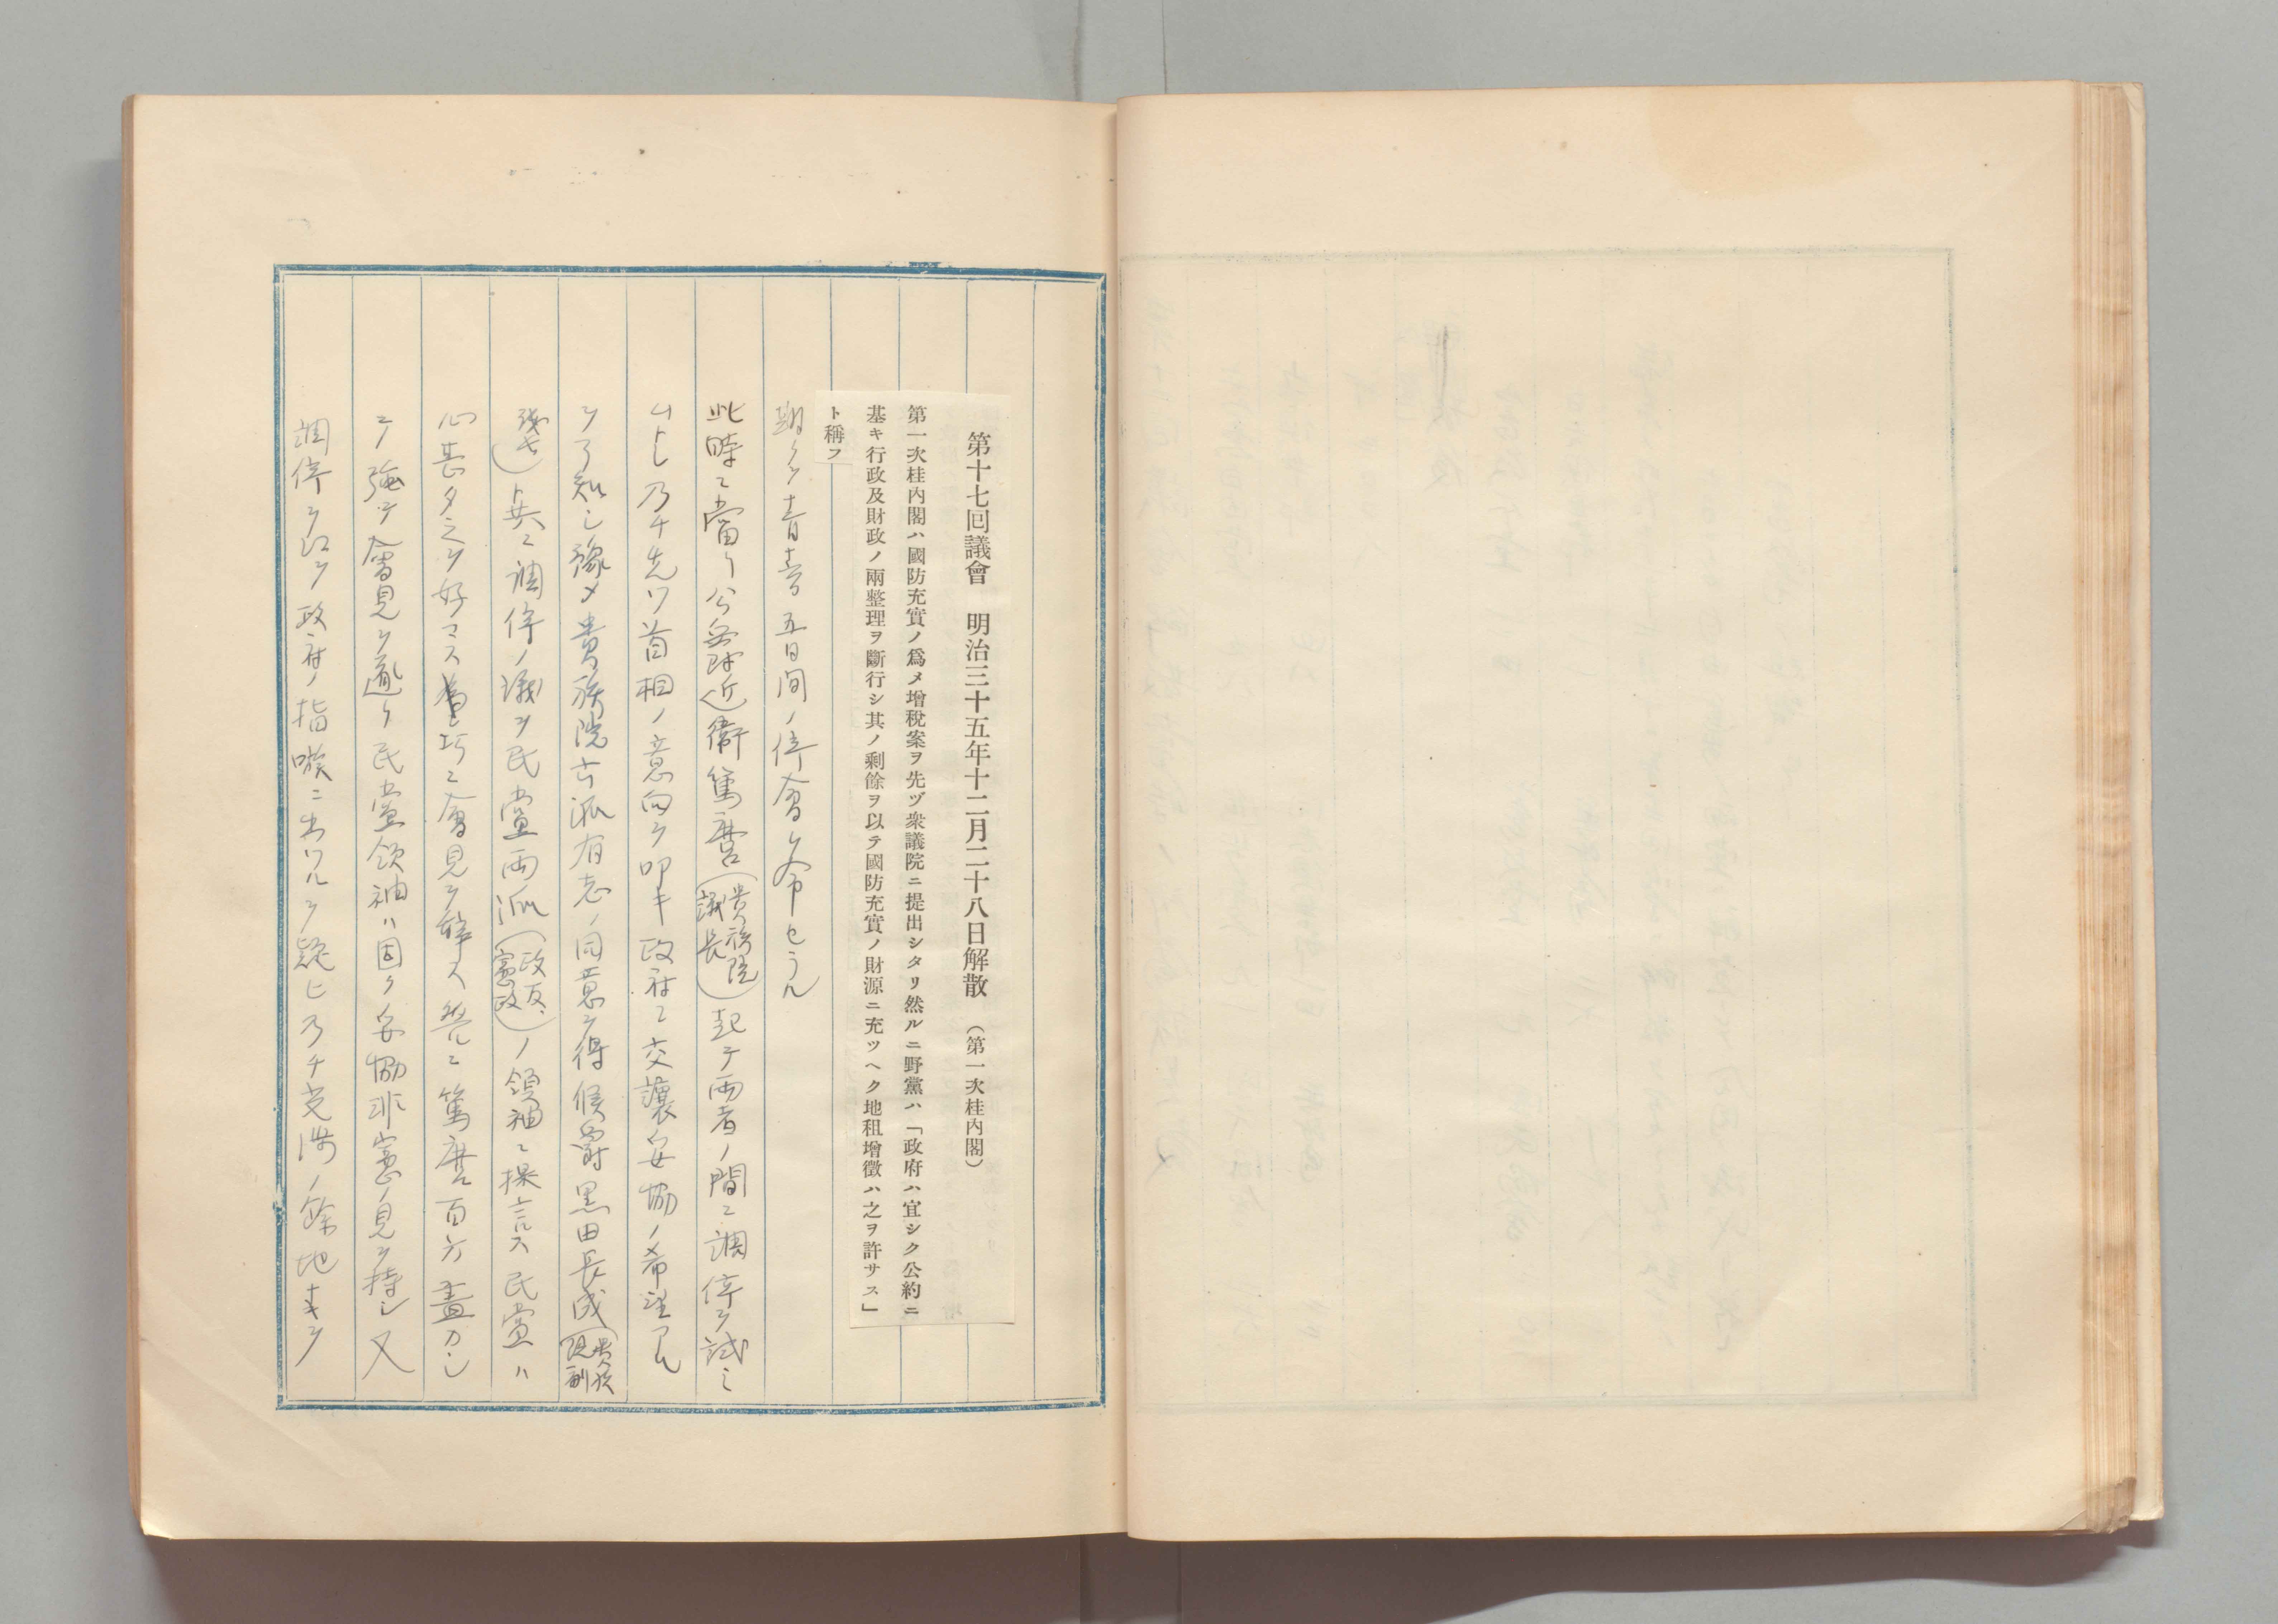 第十七回議會　明治三十五年十二月二十八日解散　（第一次桂內閣）
第一次桂內閣ハ國防充實ノ爲メ增稅案ヲ先ヅ衆議院ニ提出シタリ然ルニ野黨ハ「政府ハ宜シク公約ニ
基キ行政及財政ノ兩整理ヲ斷行シ其ノ剩餘ヲ以テ國防充實ノ財源ニ充ツヘク地租增徵ハ之ヲ許サス」
ト稱フ
五日間ノ停會ヲ命セラル
此時ニ當リ公爵近衞篤麿（貴族院議長）起テ兩者ノ間ニ調停ヲ試ミ
ントシ乃チ先ツ首相ノ意向ヲ叩キ政府ニ交讓妥協ノ希望アル
ヲ了知シ豫メ貴族院各派有志ノ同意ヲ得侯爵黑田長成（貴族院副
議長）ト共ニ調停ノ議ヲ民黨兩派（政友、憲政）ノ領袖ニ提言ス民黨ハ
心甚タ之ヲ好マス巧ニ會見ヲ辭ス然レトモ篤麿百方盡力シ
テ強テ會見ヲ遂ケ民黨領袖ハ固ク妥協非憲ノ見ヲ持シ又
調停ヲ以テ政府ノ指嗾ニ出ツルヲ疑ヒ乃チ交涉ノ餘地ナキヲ